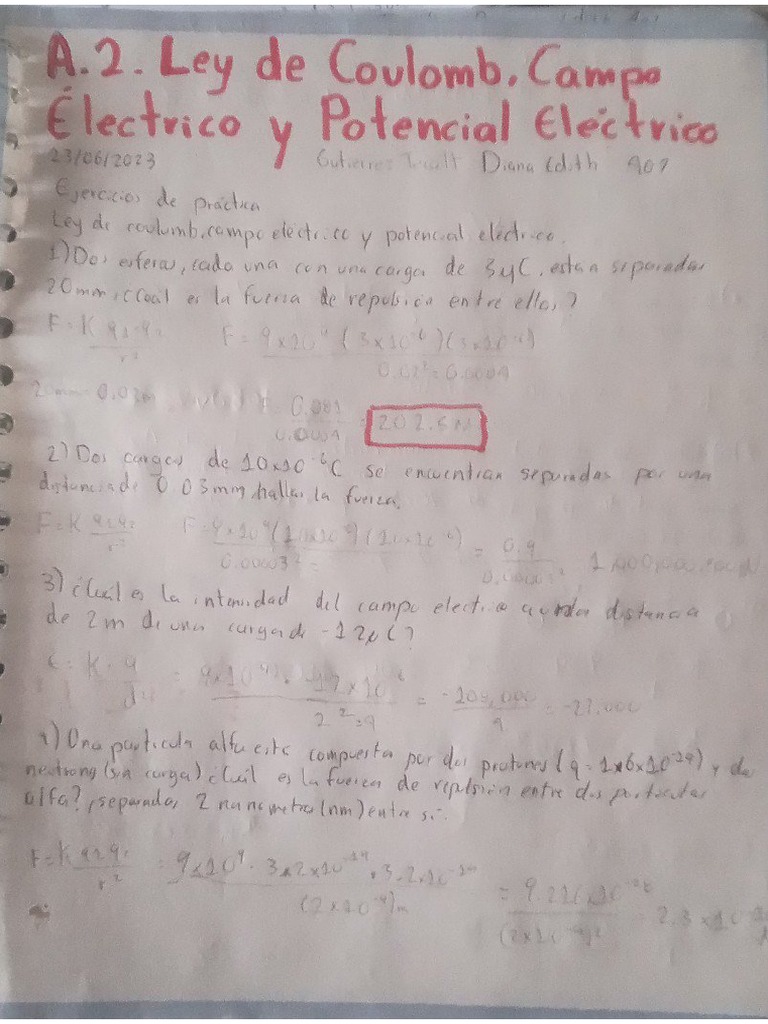 A.2. Ley de Coulomb, Campo
Électrico y Potencial Eléctrico
23/06/2023 Diana Edith
Ejercicios de práctica
Ley de coulumb, campo eléctrico y potencial eléctrico.
1) Dos esferas, cada una con una carga de 3µC, estan separadas
20mm, ¿Cuál es la fuerza de repulsión entre ellas?
F=K q1·q2 / r² F= 9x10⁹ (3x10⁻⁶)(3x10⁻⁶) / 0.02²=0.0004
20mm = 0.02m 0.081 / 0.0004 202.5N
2) Dos cargas de 10x10⁻⁶C se encuentran separadas por una
distancia de 0.03mm, hallar la fuerza.
F=K q1q2 / r² = 0.9
3) ¿Cuál es la intensidad del campo electrico a una distancia
de 2m de una carga de -12µC?
= -108,000 / 4 = -27.000
4) Una particula alfa este compuesta por dos protones (q = 1x6x10⁻¹⁹) y dos
neutrons (sin carga) ¿Cuál es la fuerza de repulsión entre dos particulas
alfa?, separadas 2 nanometros (nm) entre si.
F=K q1q2 / r² = 9x10⁹ · 3.2x10⁻¹⁹ · 3.2x10⁻¹⁹ / (2x10⁻⁹)m